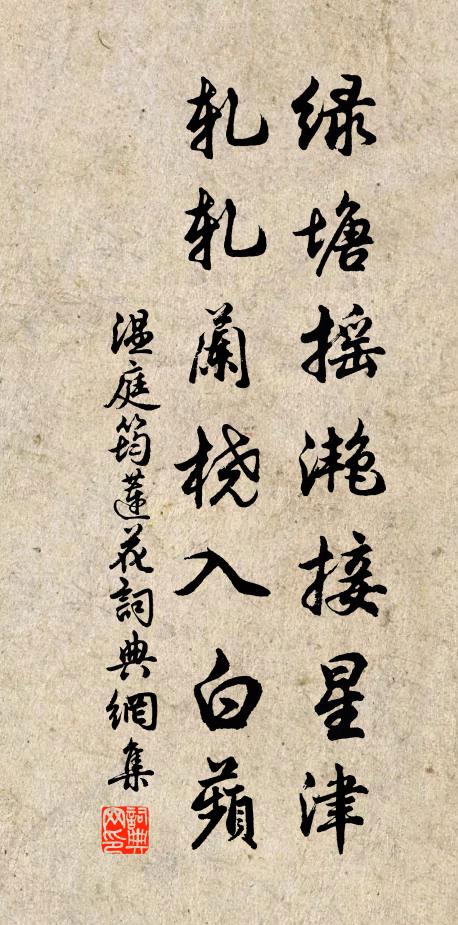 绿塘摇滟接星津
轧轧兰桡入白蘋
温庭筠莲花词典網集
詞典網印